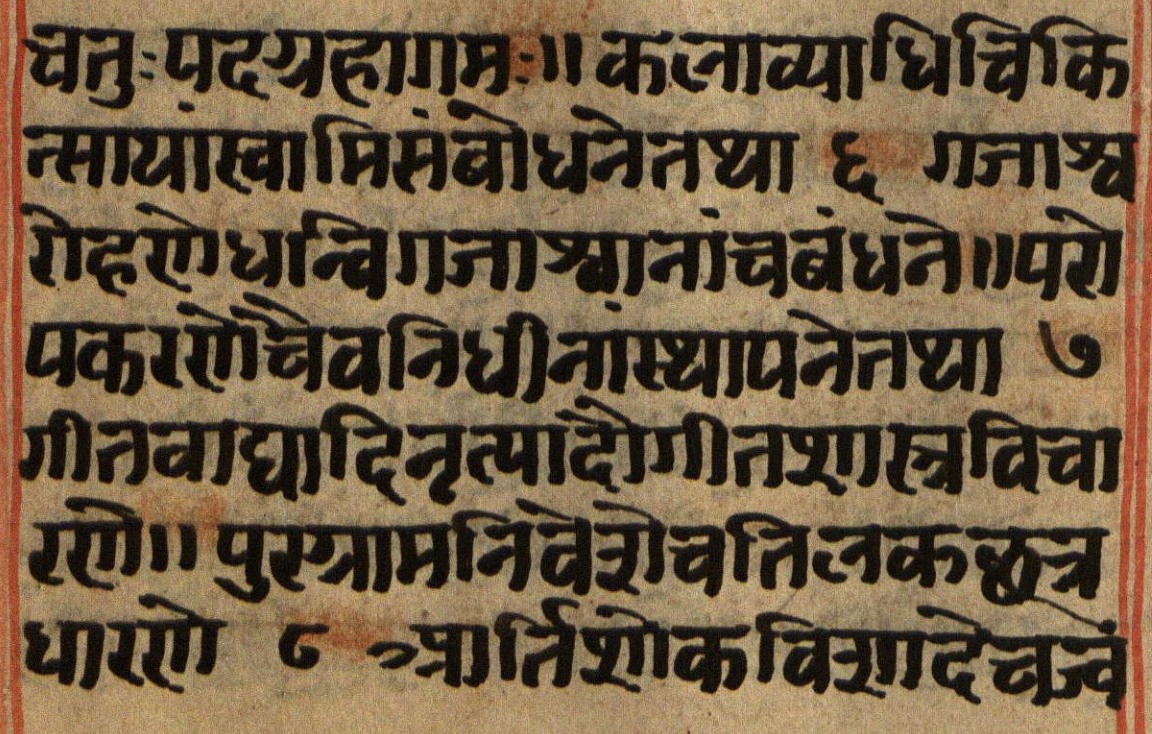 चतुःपदग्रहागमः॥ कलाव्याधिचिकि
त्सायांस्वामिसंबोधनेतथा ६ गजाश्व
रोहणेधन्विगजाश्वानांचबंधने॥परो
पकरणेचैवनिधीनांस्थापनेतथा ७
गीतवाद्यादिनृत्यादौगीतशास्त्रविचा
रणे॥ पुरग्रामनिवेशेचतिलकछत्र
धारणे ८ आर्तिशोकविशादेचज्वं